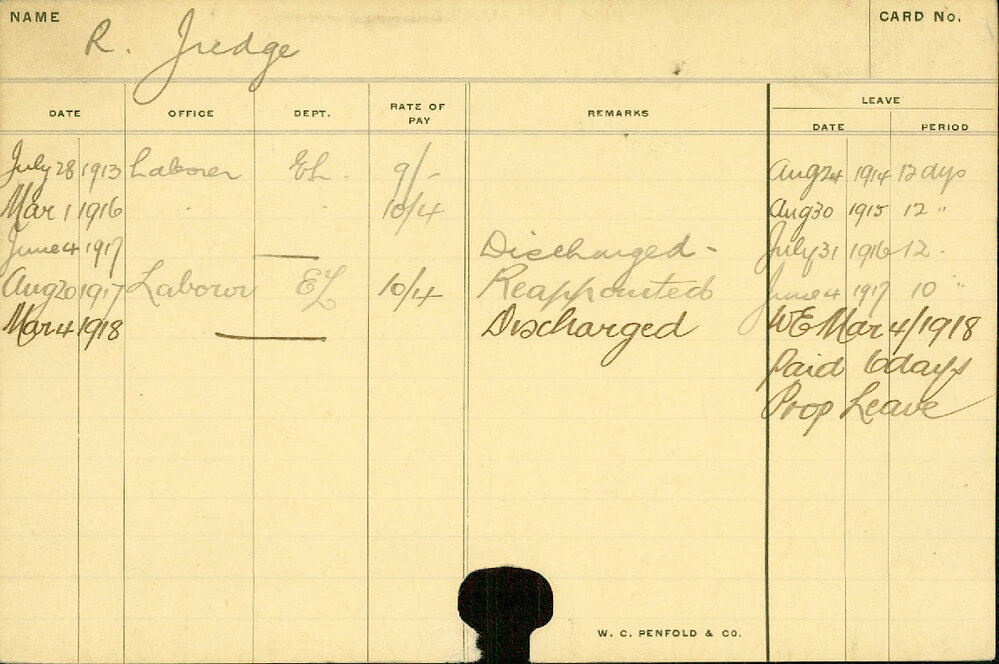 NAME R. Iredge CARD No.
DATE OFFICE DEPT. RATE OF PAY REMARKS LEAVE
DATE PERIOD
July 28 1913 Laborer EL. 9/- Aug 24 1914 12 dys
Mar 1 1916 . . 10/4 Aug 30 1915 12 "
June 4 1917 — Discharged - July 31 1916 12 .
Aug 20 1917 Labourer EL 10/4 Reappointed June 4 1917 10 "
Mar 4 1918 — Discharged WE Mar 4/1918
Paid 6 days
Prop Leave
W. C. PENFOLD & CO.